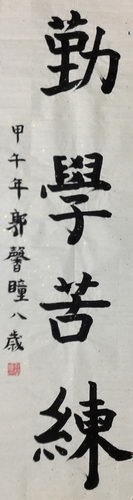 勤學苦練
甲午年郭馨瞳八歲